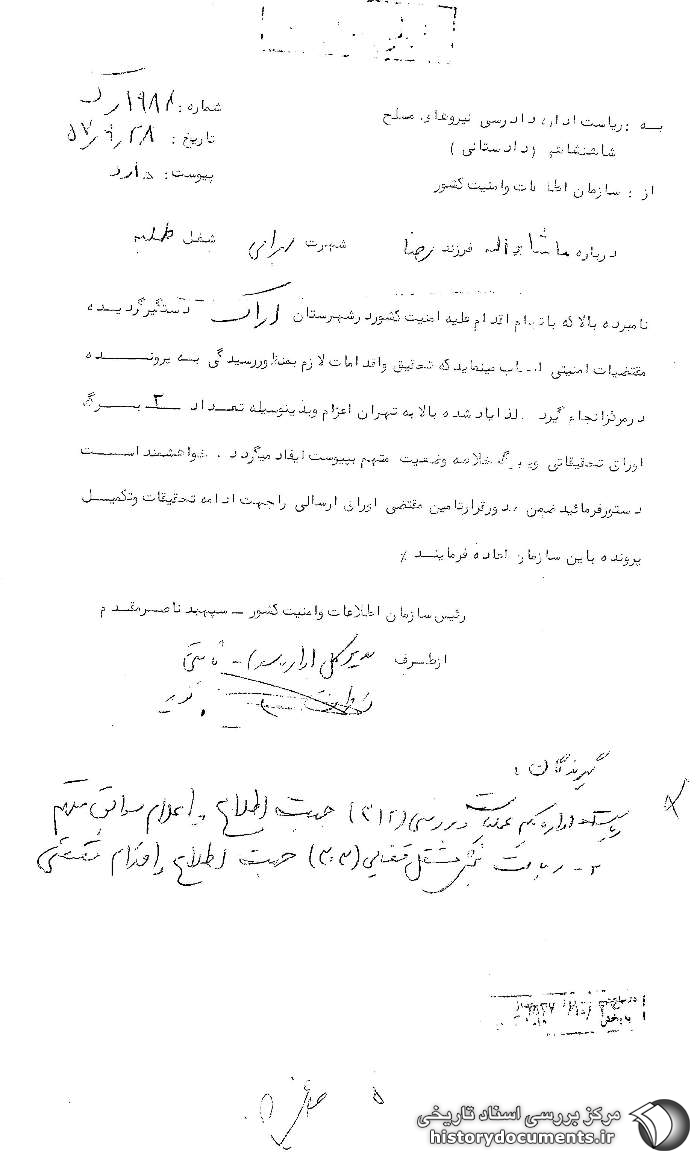 شماره: ۱۹۸۸/رک
به: ریاست اداره دادرسی نیروهای مسلح
تاریخ: ۵۷/۹/۲۸
شاهنشاهی (دادستانی)
پیوست: دارد
از: سازمان اطلاعات و امنیت کشور
درباره ماشااله فرزند رضا شهرت شغل
نامبرده بالا که باتهام اقدام علیه امنیت کشور در شهرستان اراک دستگیر گردیده
مقتضیات امنیتی ایجاب مینماید که تحقیق و اقدامات لازم بمنظور رسیدگی به پرونده
در مرکز انجام گیرد. لذا یاد شده بالا به تهران اعزام و بدینوسیله تعداد ۲ برگ
اوراق تحقیقاتی و برگ خلاصه وضعیت متهم بپیوست ایفاد میگردد. خواهشمند است
دستور فرمائید ضمن صدور قرار تامین مقتضی اوراق ارسالی را جهت ادامه تحقیقات و تکمیل
پرونده باین سازمان اعاده فرمایند ٪
رئیس سازمان اطلاعات و امنیت کشور - سپهبد ناصر مقدم
از طرف مدیر کل اداره سوم - ثابتی
گیرندگان:
ریاست اداره یکم عملیات و بررسی (۳۱۲) جهت اطلاع و اعلام سوابق متهم
۲- ریاست بخش مستقل قضایی (۳۰۳) جهت اطلاع و اقدام مقتضی
مرکز بررسی اسناد تاریخی
historydocuments.ir